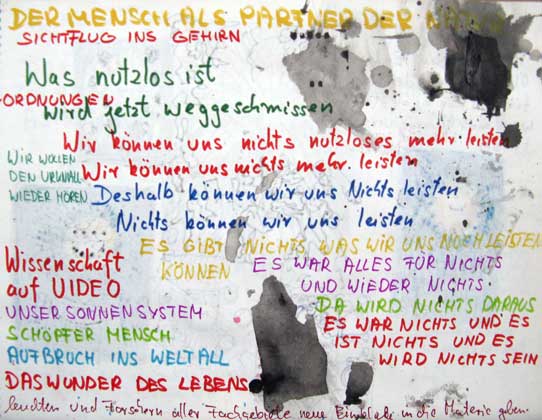 DER MENSCH ALS PARTNER DER
SICHTFLUG INS GEHIRN
Was nutzlos ist
ORDNUNGEN
wird jetzt weggeschmissen
Wir können uns nichts nutzloses mehr leisten
WIR WOLLEN
DEN URWALD
WIEDER HÖREN
Wir können uns nichts mehr leisten
Deshalb können wir uns Nichts leisten
Nichts können wir uns leisten
ES GIBT NICHTS WAS WIR UNS NOCH LEISTEN
KÖNNEN
Wissenschaft
auf VIDEO
ES WAR ALLES FÜR NICHTS
UND WIEDER NICHTS
UNSER SONNENSYSTEM
SCHÖPFER MENSCH
AUFBRUCH INS WELTALL
DAS WUNDER DES LEBENS
DA WIRD NICHTS DARAUS
ES WAR NICHTS UND ES
IST NICHTS UND ES
WIRD NICHTS SEIN
und Forschern aller Fachgebiete neue Einblicke in die Materie geben